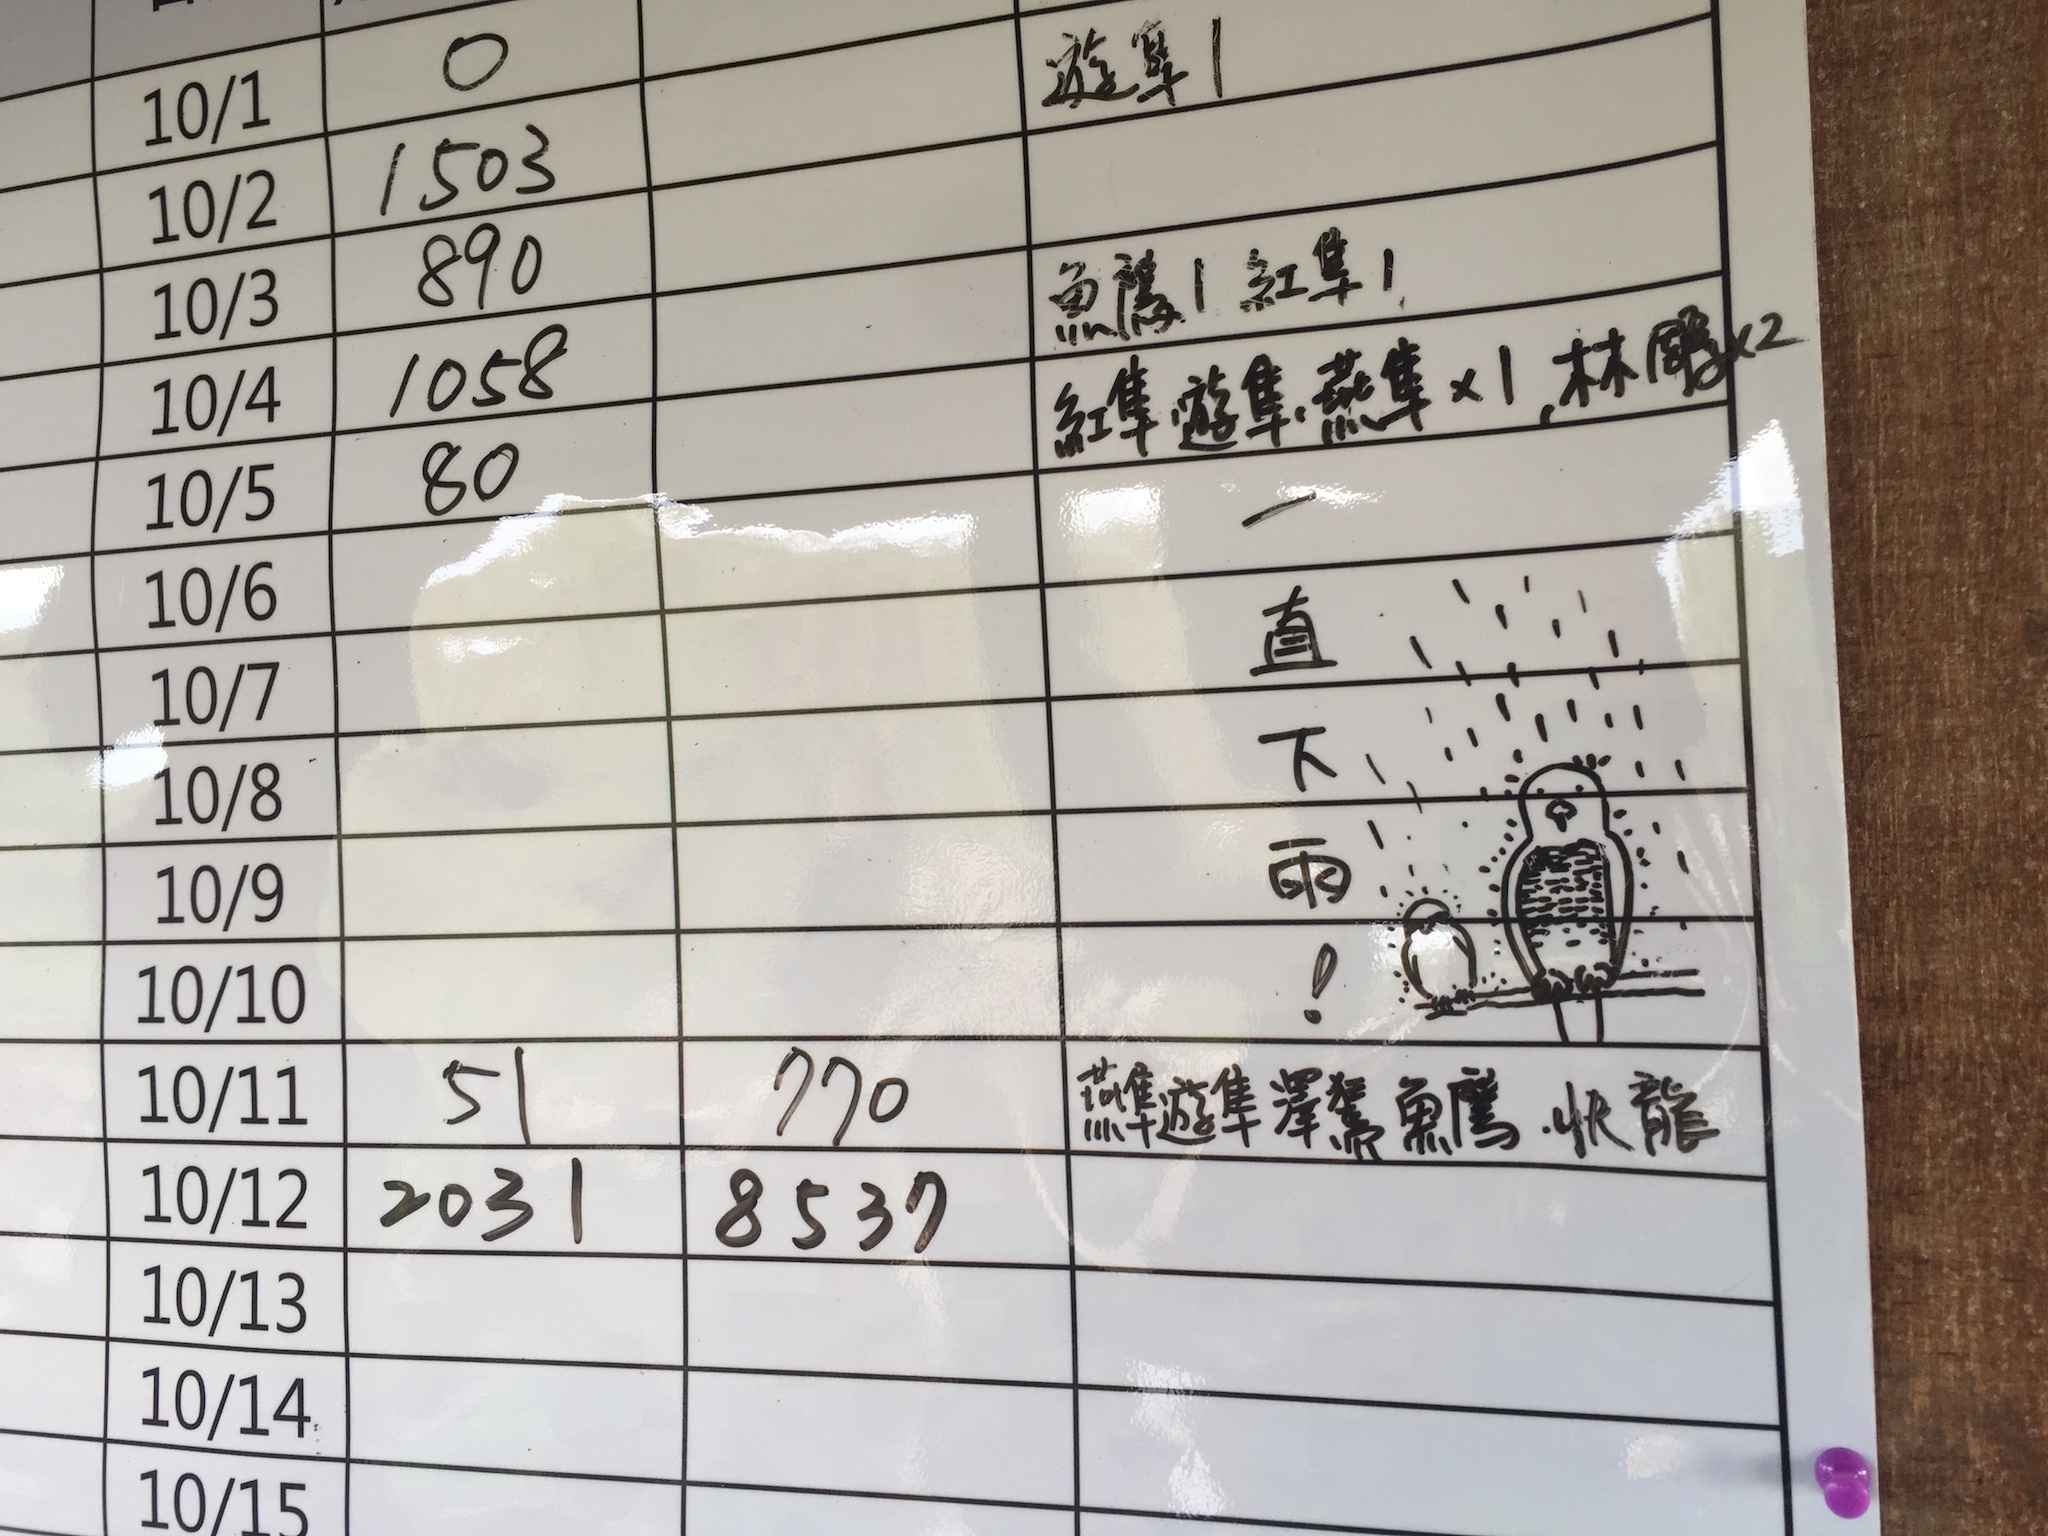 10/1 0 遊隼1
10/2 1503
10/3 890 魚鷹1 紅隼1
10/4 1058 紅隼.遊隼.燕隼x1,林鵰x2
10/5 80 一
10/6 直
10/7 下
10/8 雨
10/9 !
10/10
10/11 51 770 燕隼遊隼澤鵟魚鷹
10/12 2031 8537
10/13
10/14
10/15